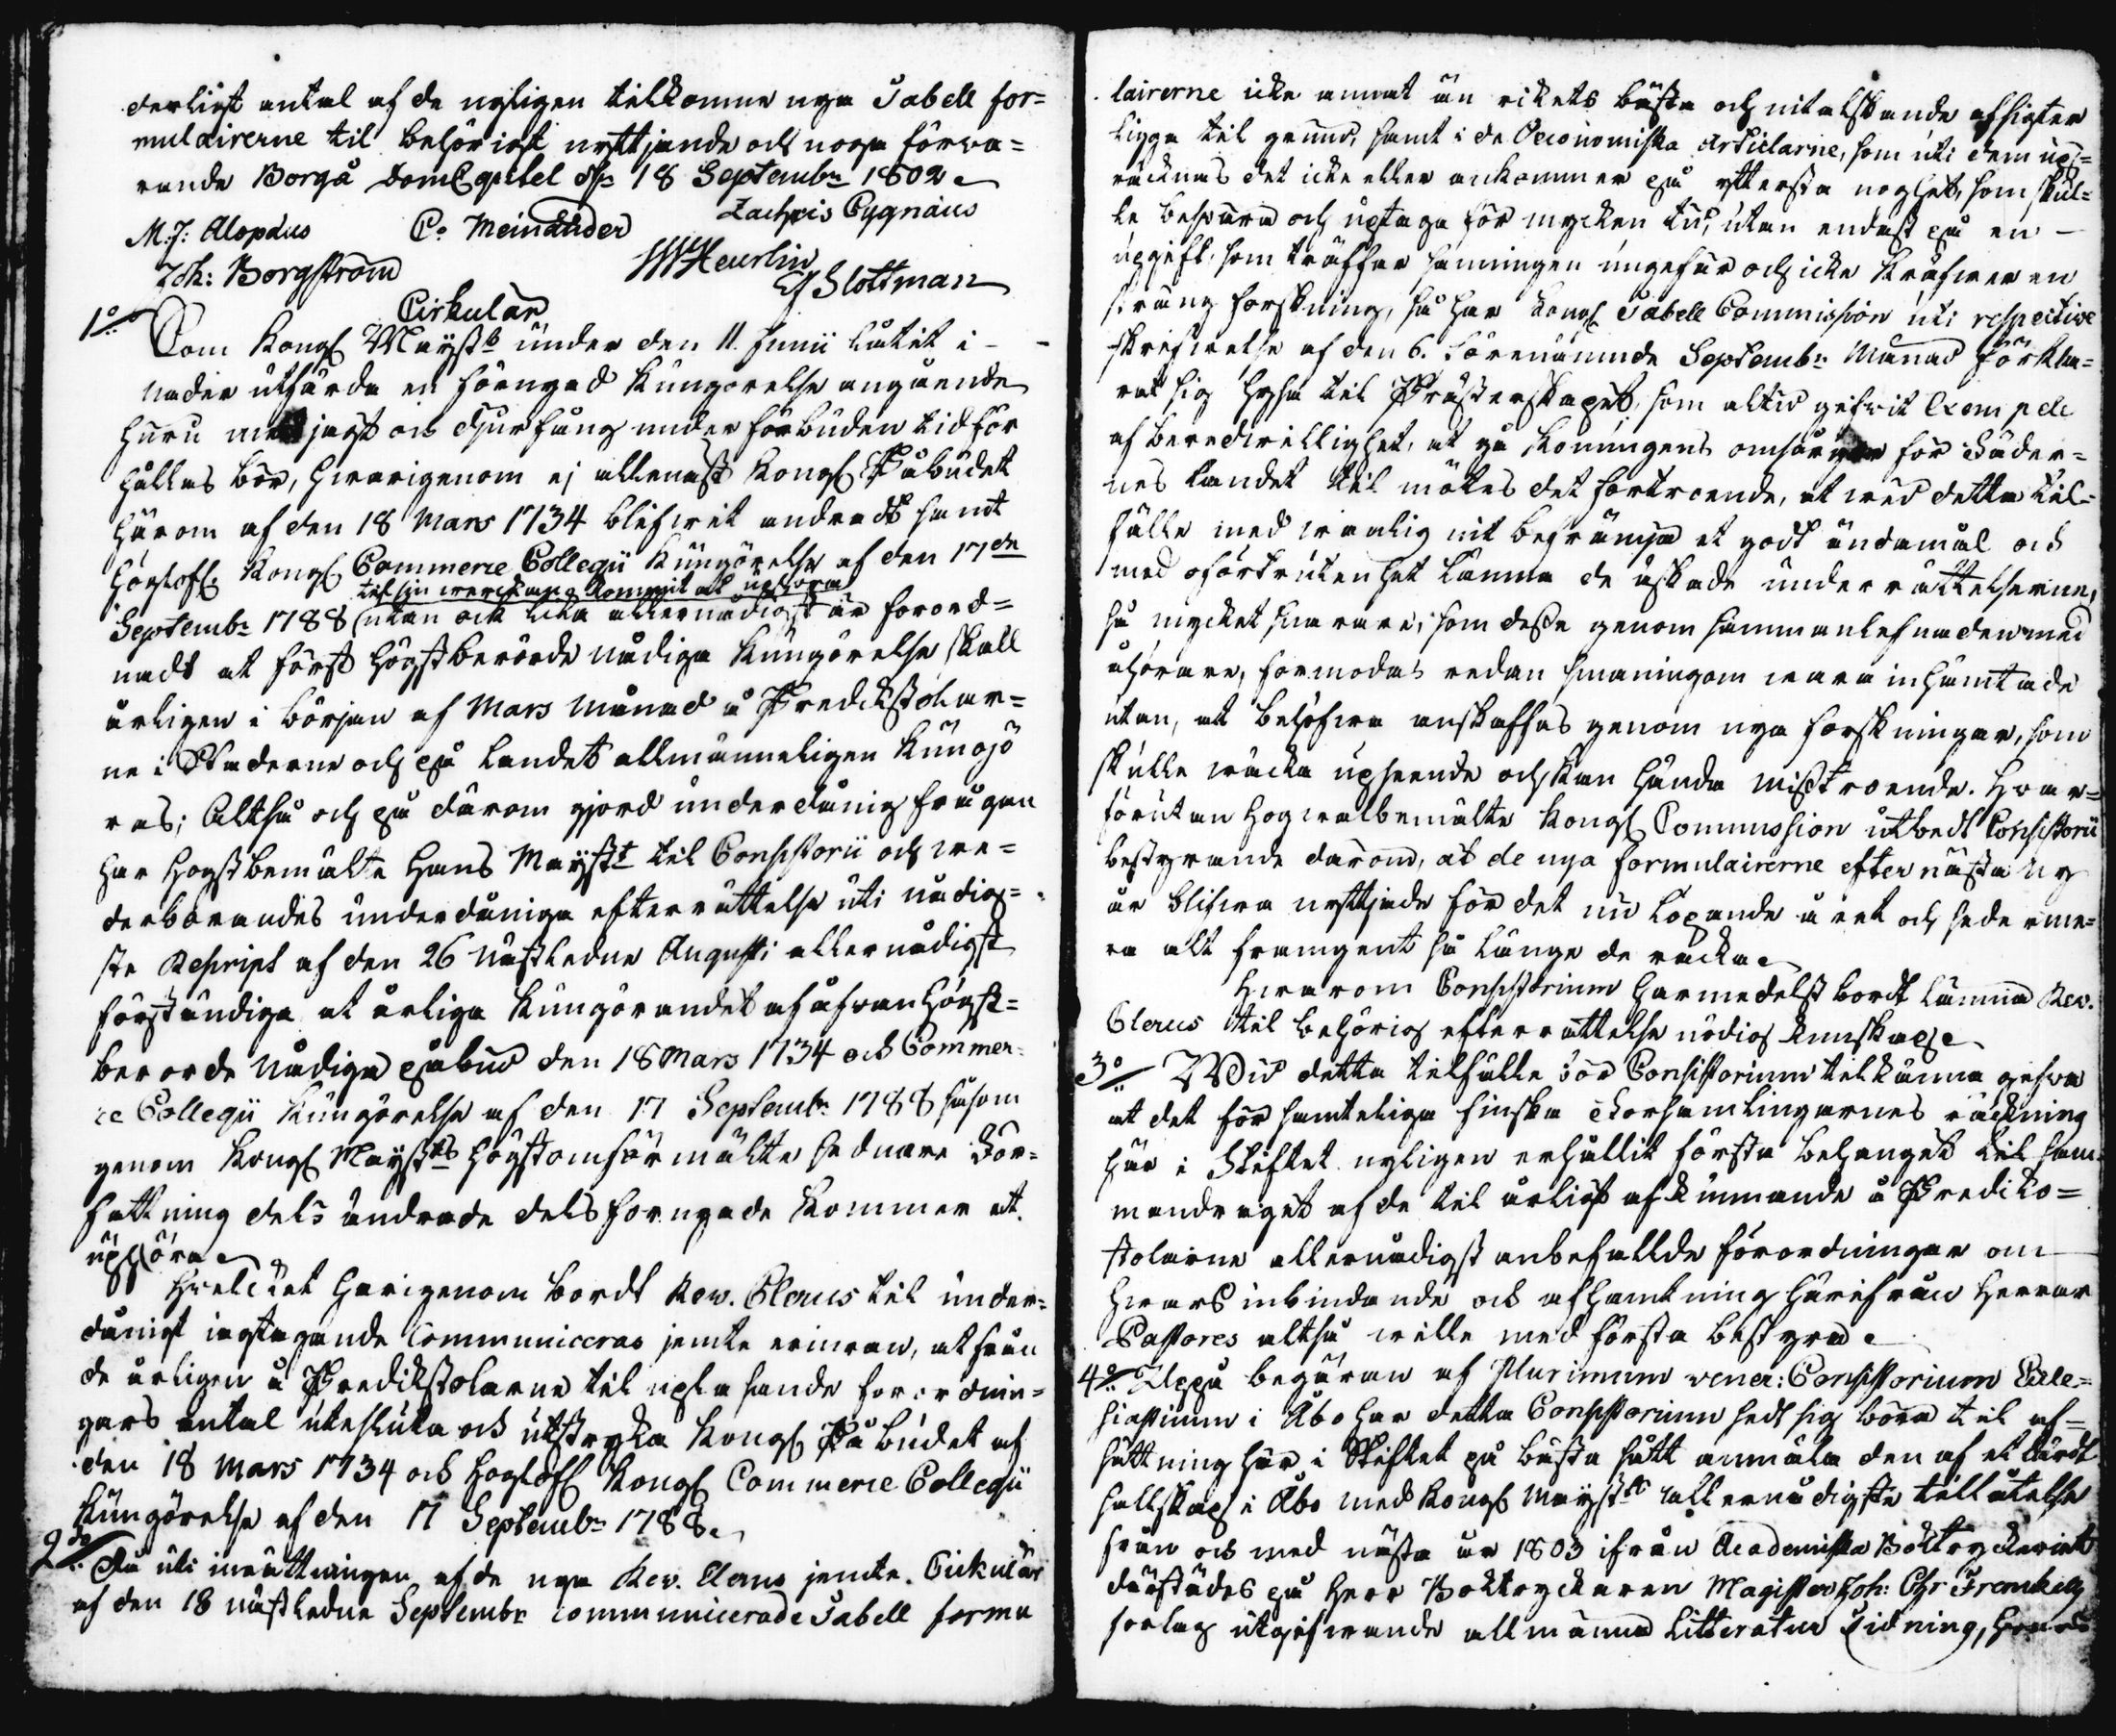 derligt antal af de nyligen tilkomne nya Tabell for=
mulairerne til behörigt nyttjande och noga förva=
rande Borgå DomCapitel d. 18 Septembr 1802
M. J: Alopæus C. Meinander Zachris Cygnæus
Joh: Borgström Heurlin Slottman
Cirkulär
1o Som Kongl Mayst:t under den 11. Junii låtit i
nåder utfärda en förnyad Kungörelse angående
huru med jagt och djurfång under förbuden tid för
hållas bör, hwarigenom ej allenast Kongl Påbudet
härom af den 18 Mars 1734 blifwit ändradt samt
Höglofl. Kongl Commerce Collegii Kungörelse af den 17de
til sin werkan kommit at uphöra
Septembr 1788 utan ock lika allernådigst är förord=
nadt at först högstberörde nådiga Kungörelse skall
årligen i början af Mars Månad å Predikstolar=
ne i Städerne och på landet allmänneligen kungjö
ras; Altså och på därom gjord underdånig frågan
har Högstbemälte Hans Mayst:t til Consistorii och we=
derbörandes underdåniga efterrättelse uti nådig=
ste Rescript af den 26 nästledne Augusti allernådigst
förständiga at årliga kungörandet af åfvan högst=
berörde Nådiga påbud den 18 Mars 1734 och Commer=
ce Collegii Kungörelse af den 17 Septembr 1788 såsom
genom Kongl Mayst:ts högstomförmälte sednare För=
fattning dels ändrade dels förnyade kommer at
uphöra.
Hwilcket härigenom bordt Rev. Clerus til under=
dånigt iagtagande Communiceras jemte erinran, at från
de årligen å Predikstolarne til uplasande förordnin=
gars antal utesluta och utstryka Kongl Påbudet af
den 18 Mars 1734 och Höglofl Kongl Commerce Collegii
Kungörelse af den 17 Septembr 1788.
2do Då uti inrättningen af de nya Rev. Clerus jemte Cirkulär
af den 18 nästledne Septembr communicerade Tabell formu
lairerne icke annat än rikets bästa och nitälskande afsigter
ligga til grund, samt i de Oeconomiska Articlarne, som uti dem up=
räcknas det icke eller ankommer på yttersta noghet, som skul=
le beswära och uptaga för mycken tid, utan endast på en
upgift, som träffar sanningen ungefär och icke kräfwer en
sträng forskning, så har Kongl Tabell Commission uti respective
skrifwelse af den 6. förenämnde Septembr Månad förkla=
rat sig hysa til Prästerskapet, som altid gifwit Exempel
af beredwillighet, at gå Konungens omsorger för Fäder=
nes landet til mötes det förtroende, at wid detta til=
fälle med wanlig nit befrämja et godt ändamål och
med oförtrutenhet lämna de äskade underrättelserne,
så mycket snarare, som desse genom sammanlefnaden med
åhörare, förmodas redan småningom wara inhämtade
utan, at behöfwa anskaffas genom nya forskningar, som
skulle wäcka upseende och kan hända misstroende. Hvar=
förutan Högwälbemälte Kongl Commission utbedt Consistorii
bestyrande därom, at de nya formulairerne efter nästa ny
år blifwa nyttjade för det nu löpande året och sederme=
ra alt framgent så länge de räcka.
Hwarom Consistorium härmedelst bordt lämna Rev.
Clerus til behörig efterrättelse nödig kunskap.
3o Wid detta tilfälle bör Consistorium tilkänna gifwa
at det för samteliga finska Församlingarnes räckning
här i Stiftet nyligen erhållit första behanget til sam=
mandraget af de til årligt afkunnande å Prediko=
stolarne allernådigst anbefallde förordningar om
hwars inbindande och afhämtning härifrån Herrar
Pastores altså wille med första bestyra.
4o Uppå begäran af Plurimum vener: Consistorium Eccle=
siasticum i Åbo har detta Consistorium sedt sig böra til af=
sättning här i Stiftet på bästa sätt anmäla den af et lärdt
sällskap i Åbo med Kongl Mayst:ts allernådigste tillåtelse
från och med nästa år 1803 ifrån Academiska Boktryckeriet
därstädes på Herr Boktryckaren Magister Joh: Chr Frenckells
förlag utgifwande allmänna Litteratur Tidning, hwars